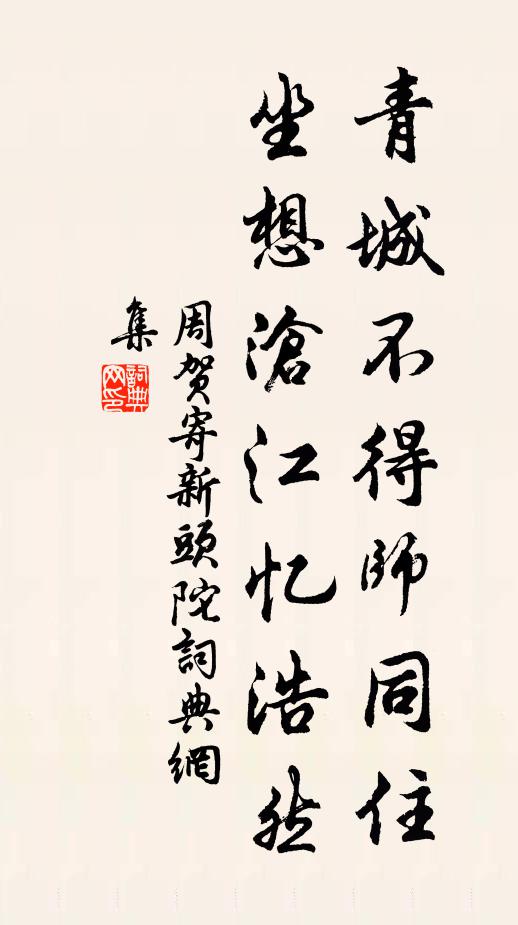 青城不得師同住
坐想滄江忆浩然
周贺寄新頭陀詞典網
集
詞典
网印